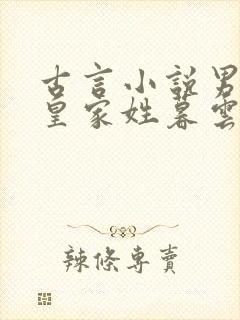 古言小說男
皇家姓慕雲
辣條專賣